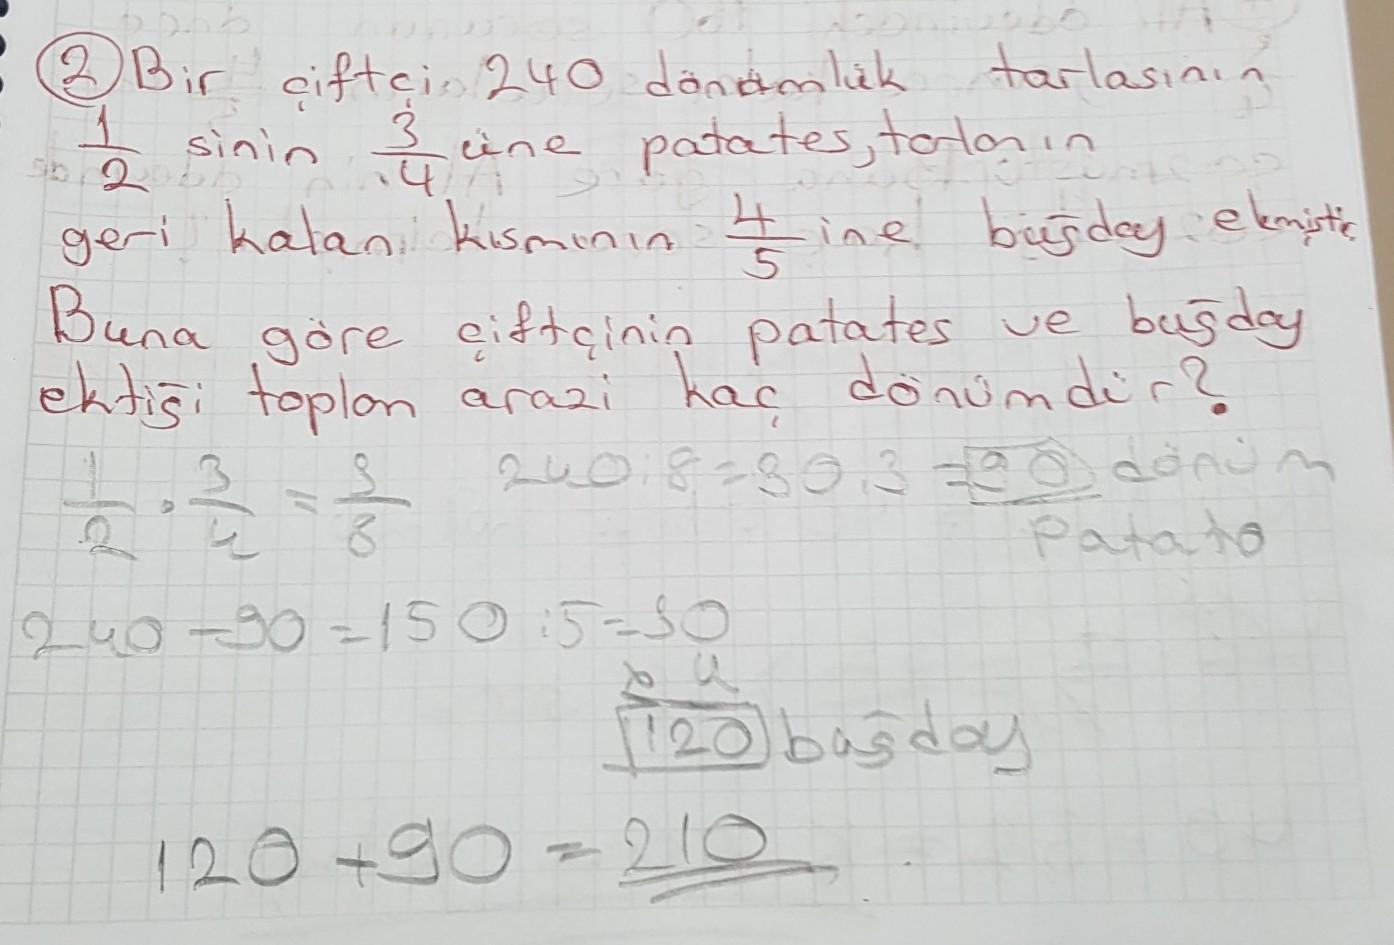 ② Bir çiftçi 240 dönümlük tarlasının
1/2 sinin 3/4 üne patates, tarlanın
geri kalan kısmının 4/5 ine buğday ekmiştir
Buna göre çiftçinin patates ve buğday
ektiği toplam arazi kaç dönümdür?
1/2 . 3/4 = 3/8 240:8=30.3=90 dönüm
240-90=150:5=30
x 4
120 buğday
120+90=210